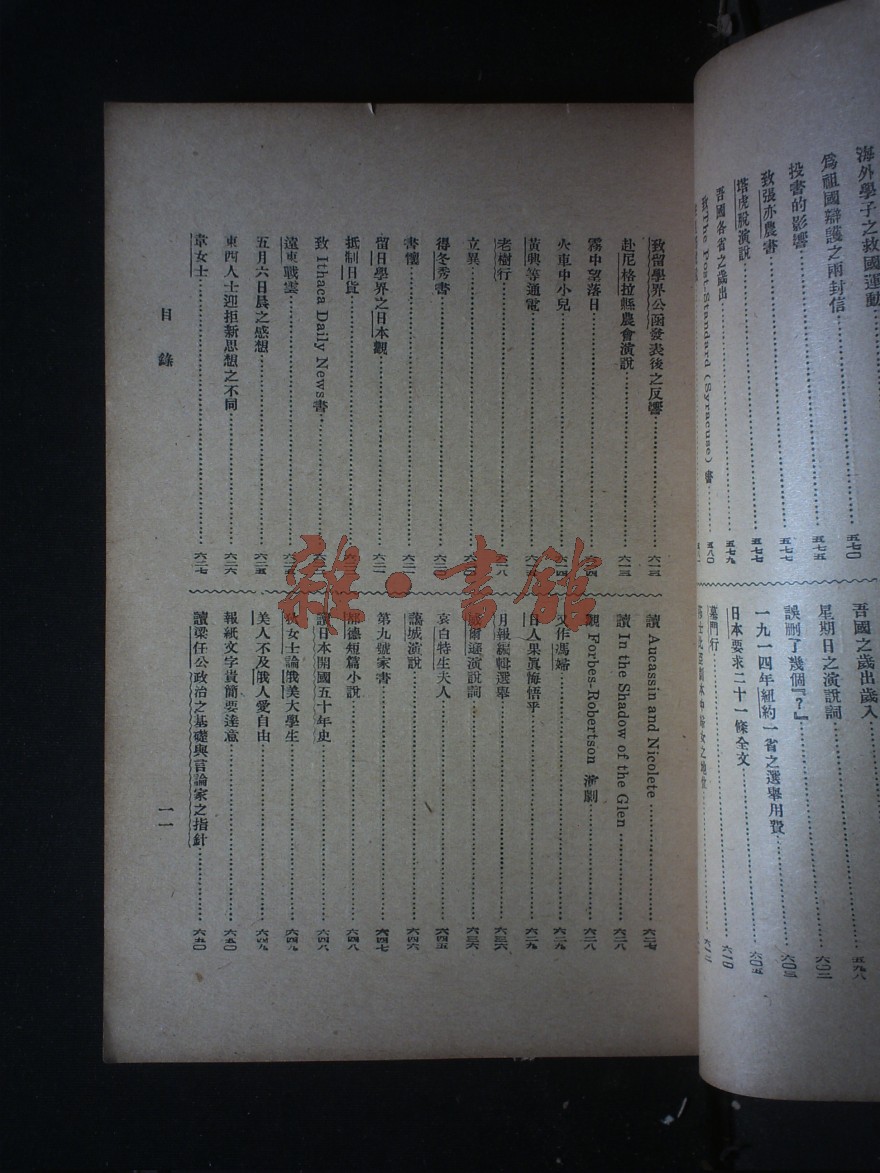 海外學子之救國運動
五七〇
爲祖國辯護之兩封信
五七五
投書的影響
五七七
致張亦農書
五七七
塔虎脫演說
五七七
吾國各省之歲出
五七九
致 The Post-Standard (Syracuse) 書
五八〇
吾國之歲出歲入
五九八
星期日之演說詞
六〇二
誤删了幾個『？』
六〇三
一九一四年紐約一省之選舉用費
六〇五
日本要求二十一條全文
六一〇
墓門行
致留學界公函發表後之反響
六一三
赴尼格拉縣農會演說
六一三
霧中望落日
火車中小兒
黃興等通電
老樹行
立異
得冬秀書
書懷
六二一
留日學界之日本觀
六二一
抵制日貨
致 Ithaca Daily News 書
遠東戰雲
五月六日晨之感想
六二五
東西人士迎拒新思想之不同
六二六
韋女士
六二七
讀 Aucassin and Nicolete
六二七
讀 In the Shadow of the Glen
六二八
觀 Forbes-Robertson 演劇
六二八
作馮婦
六二九
日人果眞悔悟乎
六二九
月報編輯選舉
六三六
爾遜演說詞
六三六
哀白特生夫人
六四五
藹城演說
六四六
第九號家書
六四七
都德短篇小說
六四八
讀日本開國五十年史
六四八
狄女士論俄美大學生
六四九
美人不及俄人愛自由
六四九
報紙文字貴簡要達意
六五〇
讀梁任公政治之基礎與言論家之指針
六五〇
目錄
一一
雜·書館